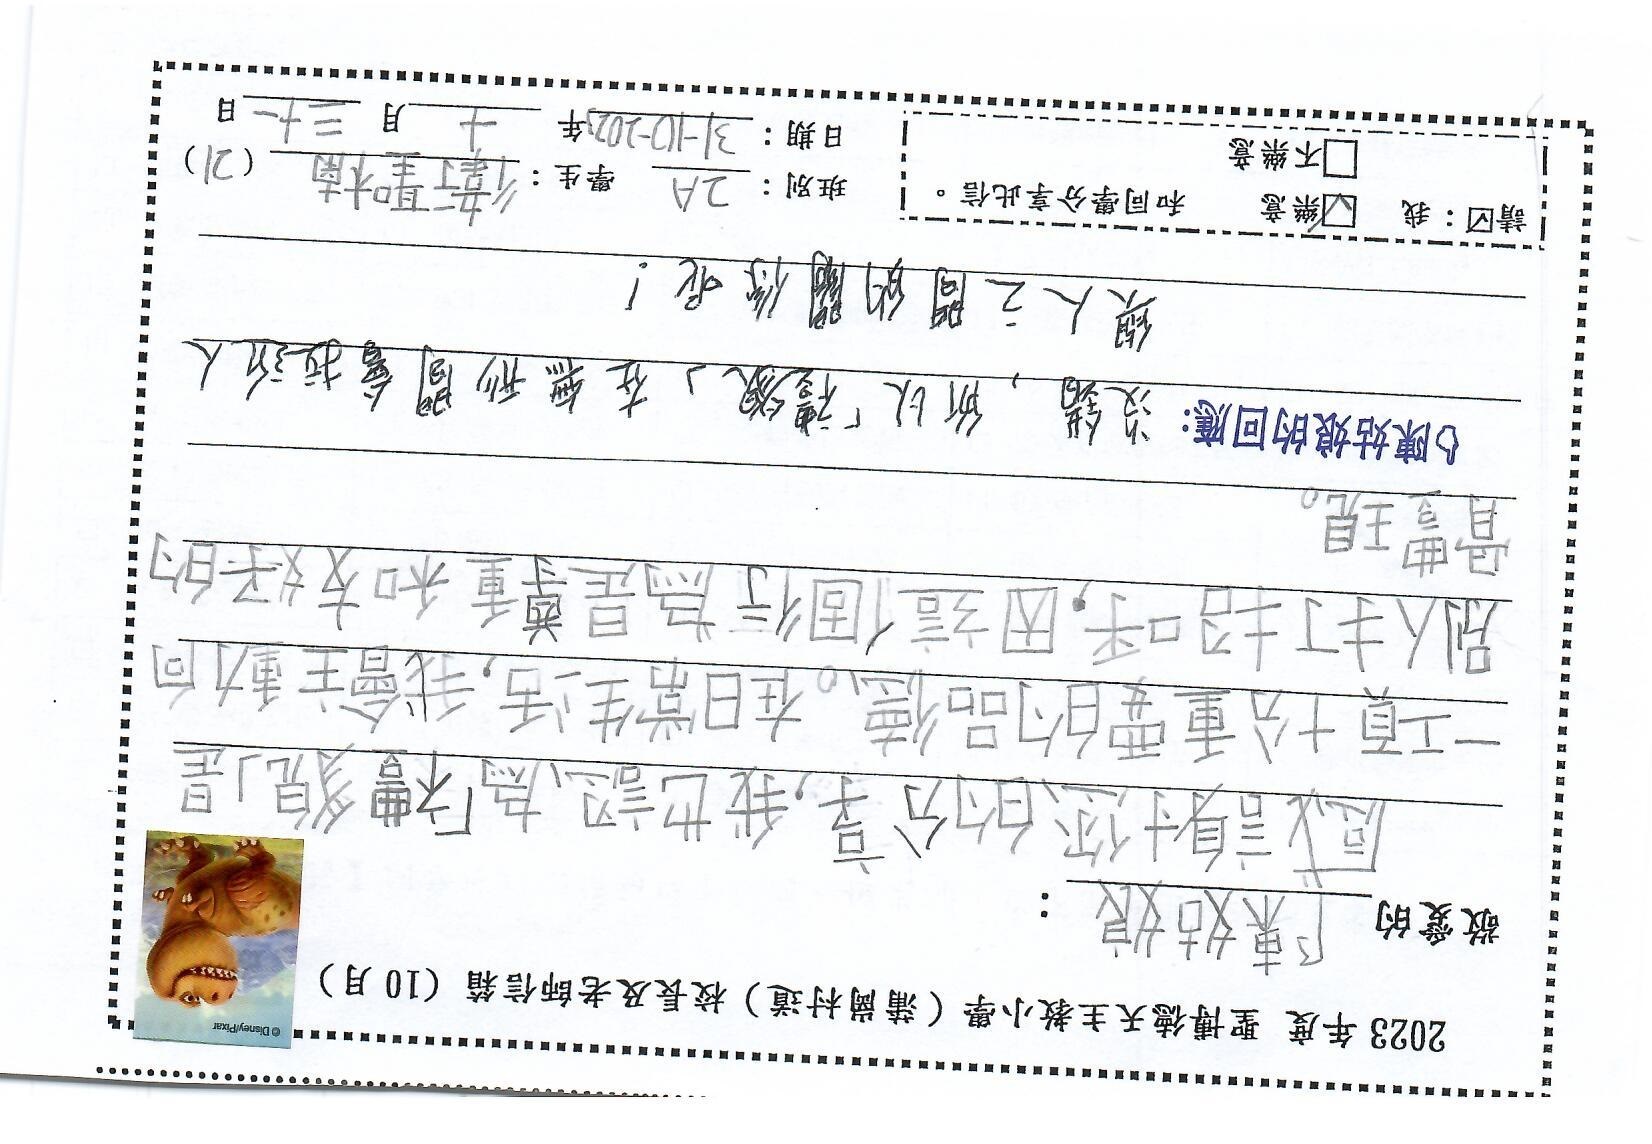 2023 年度 聖博德天主教小學（蒲崗村道）校長及老師信箱（10 月）
© Disney/Pixar
敬愛的 陳姑娘 ：
感謝你的分享，我也認為「禮貌」是
一項十分重要的品德。在日常生活，我會主動向
別人打招呼，因這個行為是尊重和友好的
體現。
陳姑娘的回應： 沒錯，所以「禮貌」在無形間會拉近人
與人之間的關係呢！
請☑：我 ☑樂意 和同學分享此信。
□不樂意
班別：2A 學生： （21）
日期：31-10-2023年 十 月 三十一 日